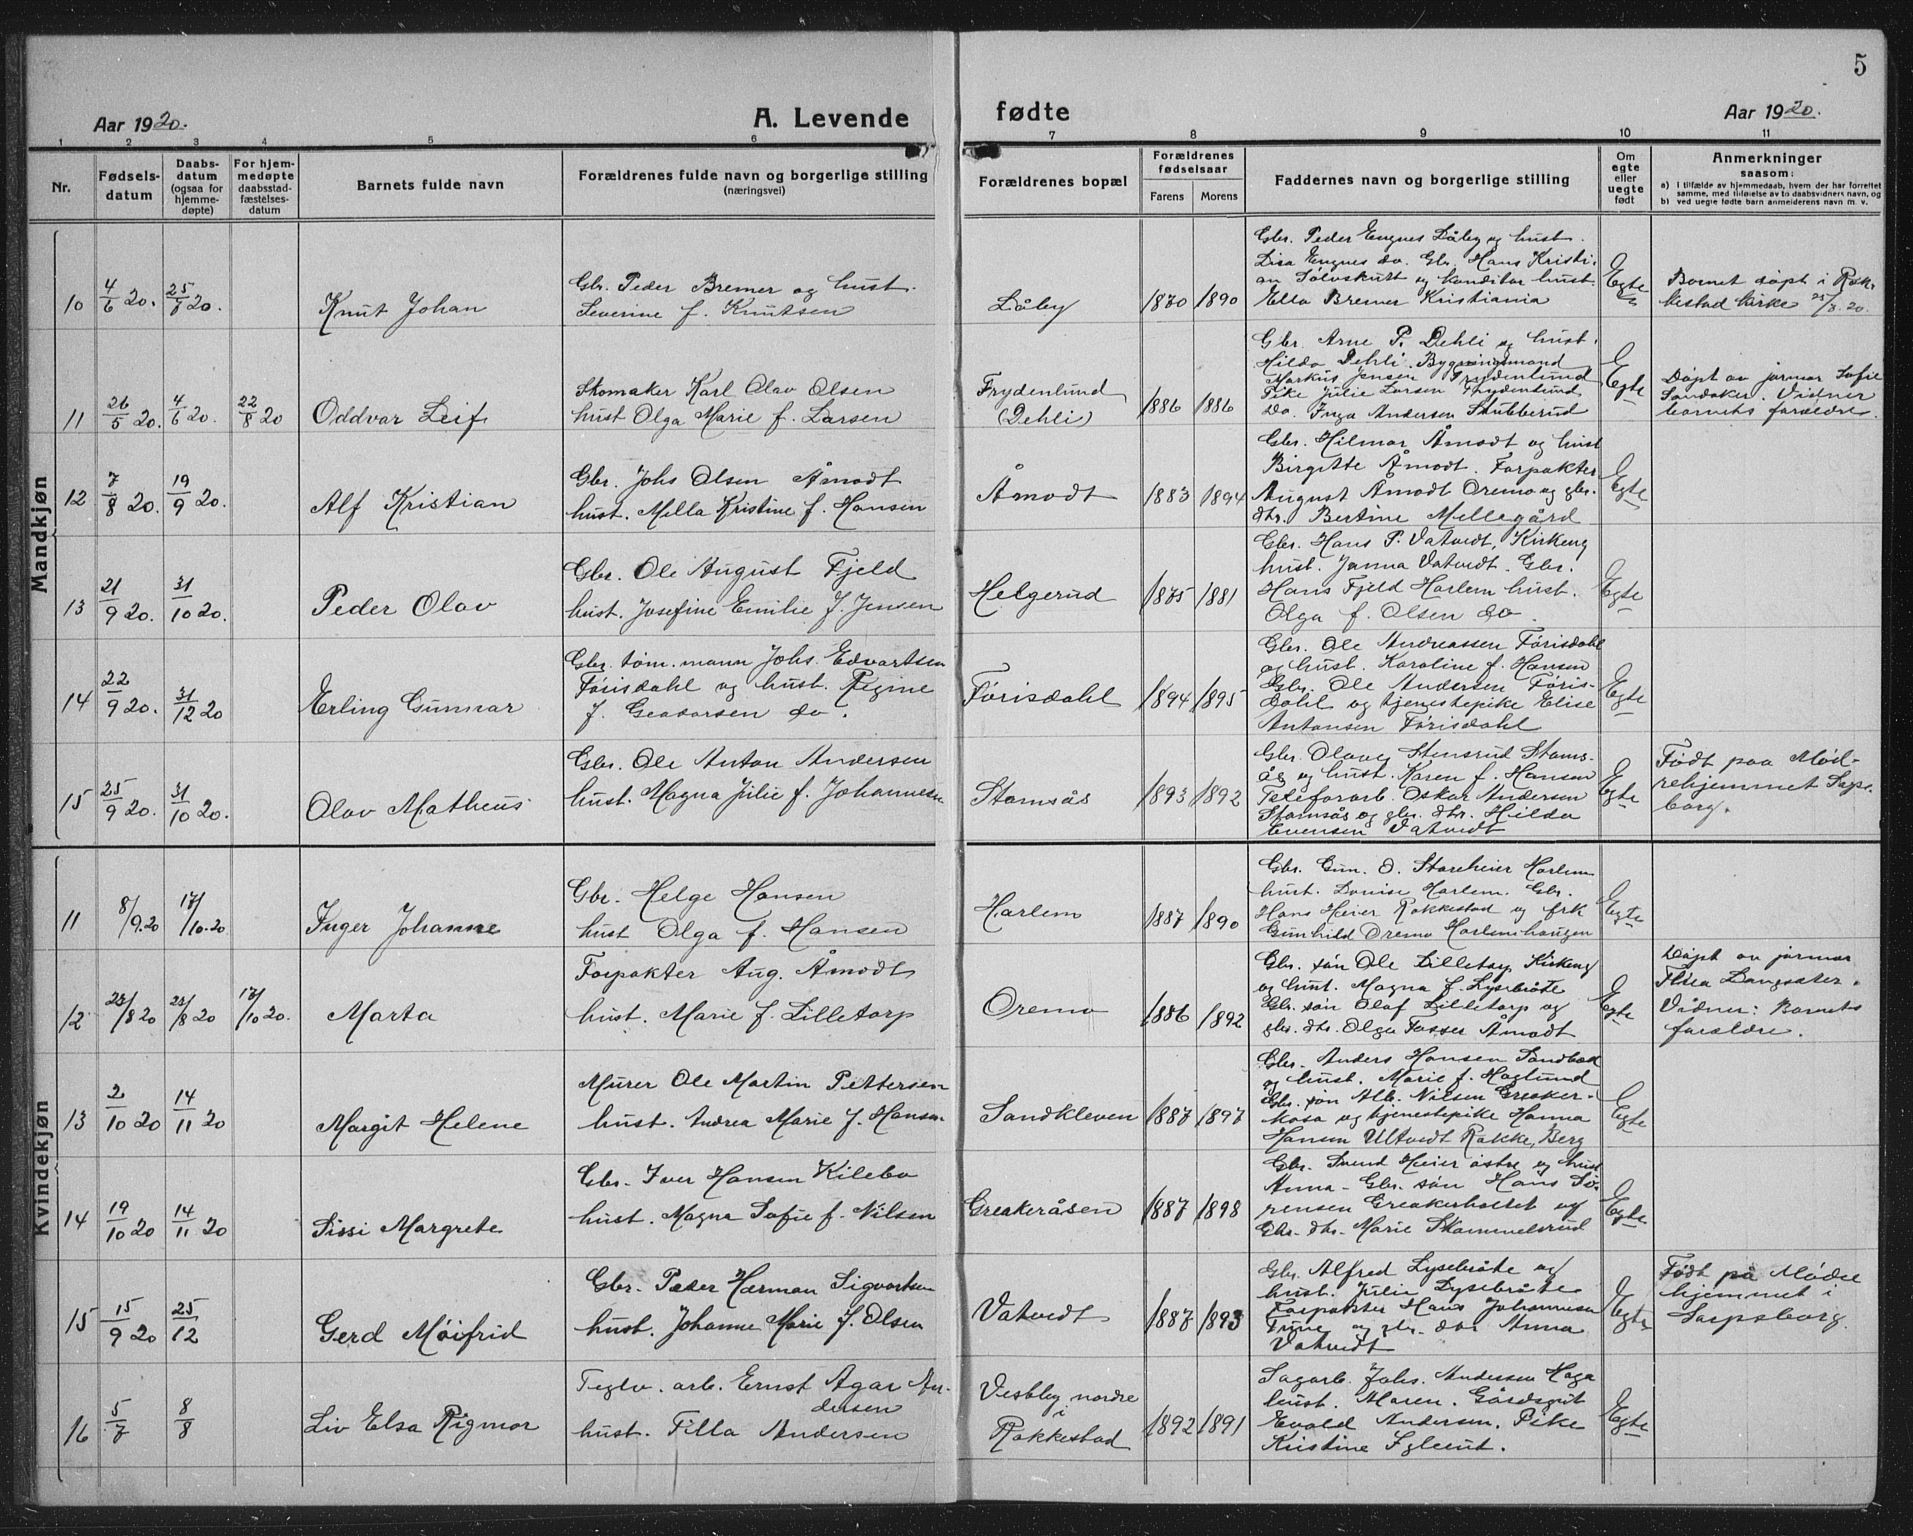 5
Aar 1920.
A. Levende
fødte
Aar 1920.
1 2 3 4 5 6 7 8 9 10 11
Nr.
Fødsels-
datum
Daabs-
datum
(ogsaa for
hjemme-
døpte)
For hjem-
medøpte
daabsstad-
fæstelses-
datum
Barnets fulde navn
Forældrenes fulde navn og borgerlige stilling
(næringsvei)
Forældrenes bopæl
Forældrenes
fødselsaar
Farens Morens
Faddernes navn og borgerlige stilling
Om
egte
eller
uegte
født
Anmerkninger
saasom:
a) I tilfælde av hjemmedaab, hvem der har forrettet
samme, med tilføielse av to daabsvidners navn, og
b) ved uegte fødte barn anmelderens navn m. v.
Mandkjøn
10 4/6 20. 25/7 20.
Knut Johan
Gbr. Peder Bremer og hust.
Severine f. Knutsen
Låby
1870 1890
Gbr. Peder Engnes Låby og hust.
Lisa Engnes do. Gbr. Hans Kristi-
an Sølvskutt og konditor hust.
Ella Bremer Kristiania
Egte
Barnet døpt i Rak-
kestad kirke 25/7.20.
11 26/5 20. 4/6 20. 22/8 20
Oddvar Leif
Skomaker Karl Olav Olsen
hust Olga Marie f. Larsen
Frydenlund
(Dehli)
1886 1886
Gbr. Arne P. Dehli og hust.
Hilda Dehli. Bygningsmand
Markus Jensen Frydenlund
Pike Julie Larsen Frydenlund
do. Inga Andersen Stubberud
Egte
Døpt av jormor Sofie
Sandaker. Vidner
barnets forældre.
12 7/8 20. 19/9 20.
Alf Kristian
Gbr. Johs Olsen Åmodt
hust. Milla Kristine f. Hansen
Åmodt
1883 1894
Gbr. Hilmar Åmodt og hust
Birgitte Åmodt. Forpakter
August Åmodt Oremo og gbr.
dtr. Bertine Mellegård
Egte
13 21/9 20. 31/10 20.
Peder Olav
Gbr. Ole August Fjeld
hust. Josefine Emilie f. Jensen
Helgerud
1875 1881
Gbr. Hans P. Vatvedt, Kirkeng
hust. Janna Vatvedt. Gbr.
Hans Fjeld Harlem hust.
Olga f. Olsen do
Egte
14 22/9 20. 31/12 20
Erling Gunnar
Gbr. tøm. mann Johs. Edvartsen
Førisdahl og hust. Regine
f. Geodorsen do.
Førisdahl
1894 1895
Gbr. Ole Andreassen Førisdahl
og hust. Karoline f. Hansen
Gbr. Ole Andersen Føris-
dahl og tjenestepike Elise
Antonsen Førisdahl
Egte
15 25/9 20. 31/10 20.
Olav Matheus
Gbr. Ole Anton Andersen
hust. Magna Julie f. Johannesen
Stomsås
1893 1892
Gbr. Olave Stensrud Stoms-
ås og hust. Karen f. Hansen
Oskar Andersen
Stomsås og gbr. dtr. Hilda
Evensen Vatvedt
Egte
Født paa Mød-
rehjemmet Sarps-
borg.
Kvindekjøn
11 8/9.20 17/10.20
Inger Johanne
Gbr. Helge Hansen
hust Olga f. Hansen
Harlem
1887 1890
Gbr. Gun. O. Storeheier Harlem
hust. Lovise Harlem. Gbr.
Hans Heier Rakkestad og frk
Gunhild Oremo Harlemshaugen
Egte
12 23/8 20 23/8 20 17/10 20.
Marta
Forpakter Aug. Åmodt
hust. Marie f. Lilletorp
Oremo
1886 1892
Gbr. søn Ole Lilletorp Kirkeng
og hust. Magna f. Lysebråte
Gbr. søn Olaf Lilletorp og
gbr. dtr. Olga Fosser Åmodt
Egte
Døpt av jormor
Thea Langsæter.
Vidner: Barnets
forældre.
13 2/10 20 14/11 20
Margit Helene
Murer Ole Martin Pettersen
hust. Andrea Marie f. Hansen
Sandkleven
1887 1897
Gbr. Anders Hansen Sandbæk
og hust. Marie f. Haglund
Gbr. søn Alb. Nilsen Greaker-
kasa og tjenestepike Hanna
Hansen Ultvedt Rakke, Berg
Egte
14 19/10 20 14/11 20
Sissi Margrete
Gbr. Iver Hansen Kilebo
hust. Magna Sofie f. Nilsen
Greakeråsen
1887 1898
Gbr. Svend Heier østre og hust
Anna - Gbr. søn Hans Sø-
rensen Greakerholtet og
Gbr. dtr. Marie Skammelsrud
Egte
15 15/9 20 25/12
Gerd Møifrid
Gbr. Peder Herman Sigvartsen
hust. Johanne Marie f. Olsen
Vatvedt
1887 1893
Gbr. Alfred Lysebråte og
hust. Julie Lysebråte
Forpakter Hans Johannesen
Tune og gbr. dtr Anna
Vatvedt
Egte
Født på Mødre
hjemmet i
Sarpsborg.
16 5/7 8/8
Liv Elsa Rigmor
Teglv. arb. Ernst Agar An-
dersen
hust. Tilla Andersen
Vestby nordre
i
Rakkestad
1892 1891
Sagarb. Johs. Andersen Haga
hust. Maren. Gårdsgut
Evald Andersen. Pike
Kristine Igleint.
Egte